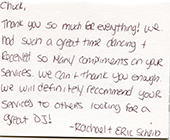 Chuck,
Thank you so much for everything! We
had such a great time dancing +
received so many compliments on your
services. We can't thank you enough.
We will definitely recommend your
services to others looking for a
great DJ!
- Rachael + Eric Schrib